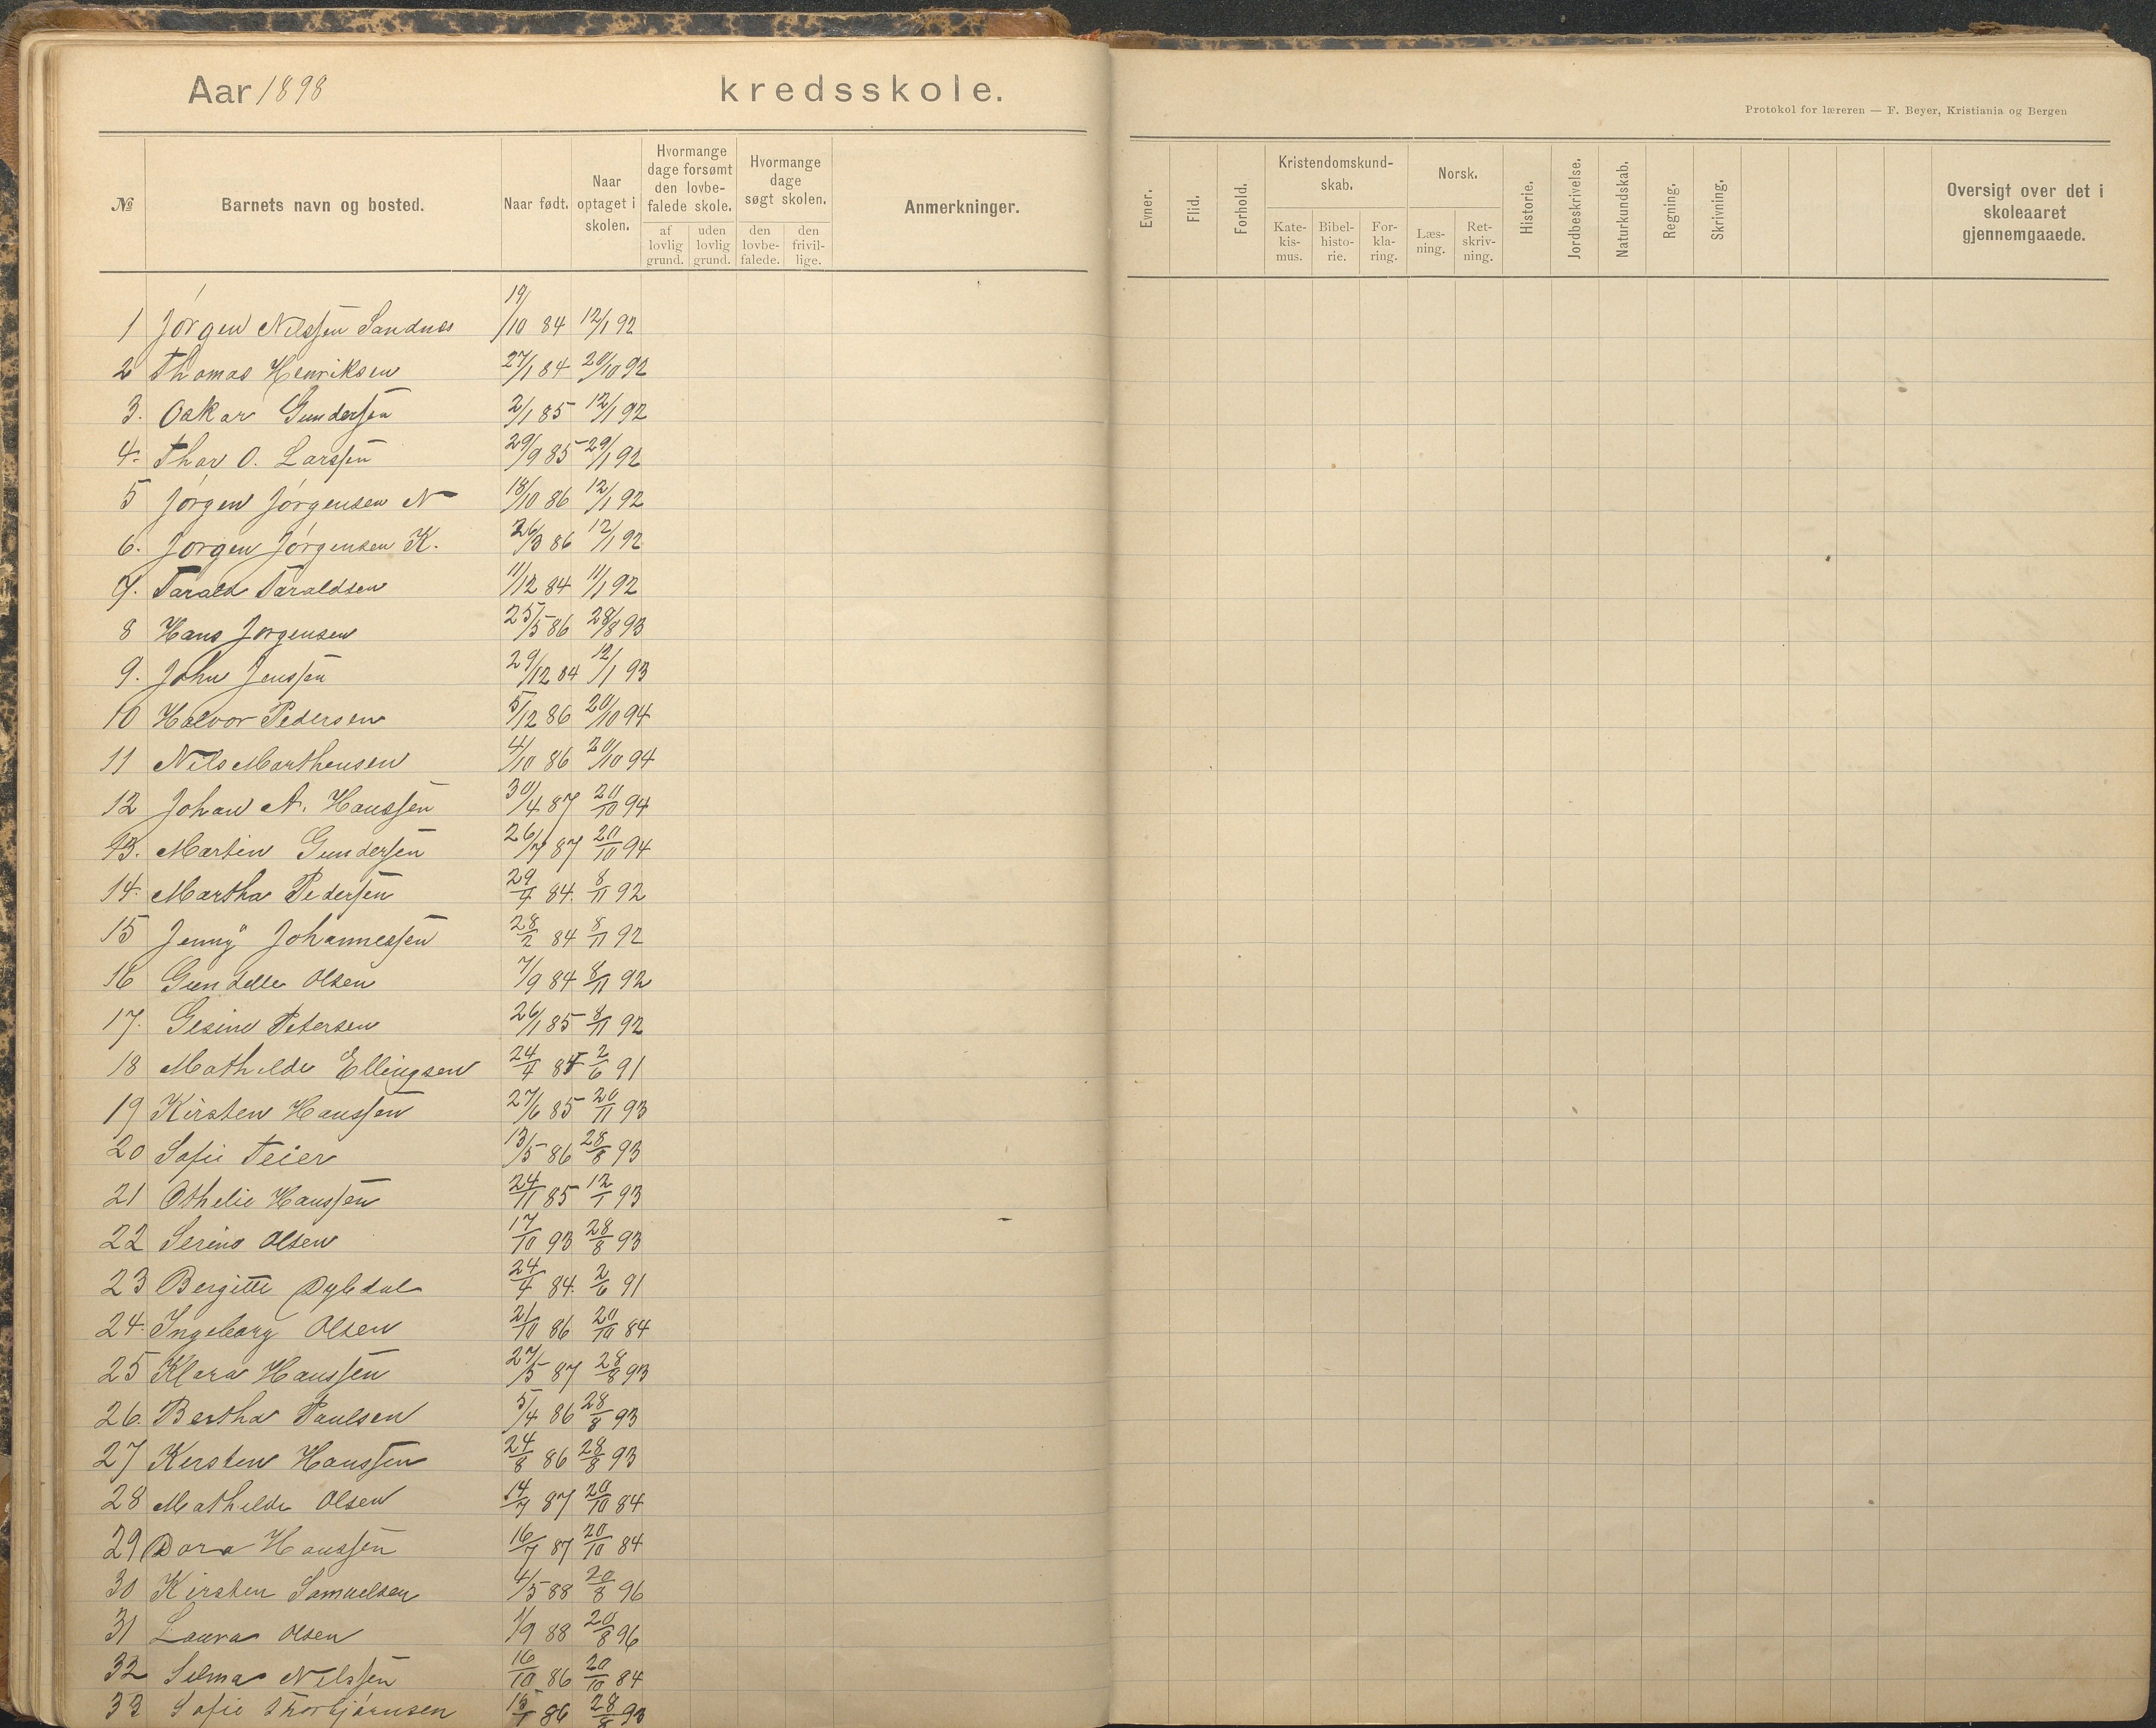 Aar 1898 kredsskole.
Protokol for læreren — F. Beyer, Kristiania og Bergen
№ Barnets navn og bosted. Naar født. Naar optaget i skolen. Hvormange dage forsømt den lovbefalede skole. af lovlig grund. uden lovlig grund. Hvormange dage søgt skolen. den lovbefalede. den frivillige. Anmerkninger.
Evner. Flid. Forhold. Kristendomskundskab. Katekismus. Bibelhistorie. Forklaring. Norsk. Læsning. Retskrivning. Historie. Jordbeskrivelse. Naturkundskab. Regning. Skrivning. Oversigt over det i skoleaaret gjennemgaaede.
1 Jørgen Nilssen Sandnes 19/10 84 12/1 92
2 Thomas Henriksen 27/1 84 20/10 92
3. Oskar Gundersen 2/1 85 12/1 92
4. Thor O. Larssen 29/9 85 29/1 92
5 Jørgen Jørgensen N 18/10 86 12/1 92
6. Jørgen Jørgensen K. 26/3 86 12/1 92
7. Tarald Taraldsen 11/12 84 11/1 92
8 Hans Jørgensen 25/5 86 28/8 93
9. John Jenssen 29/12 84 12/1 93
10 Halvor Pedersen 5/12 86 20/10 94
11 Nils Marthensen 4/10 86 20/10 94
12 Johan A. Hanssen 30/4 87 20/10 94
13. Martin Gundersen 26/7 87 20/10 94
14. Martha Pedersen 29/4 84. 8/11 92
15 Jenny Johannessen 28/2 84 8/11 92
16 Olsen 7/9 84 8/11 92
17. Gesine Petersen 26/1 85 8/11 92
18 Mathilde Ellingsen 24/4 2/6 91
19 Kirsten Hanssen 27/6 85 20/11 93
20 Sofie Teier 13/5 86 28/8 93
21 Othelie Hanssen 24/11 85 12/1 93
22 Serine Olsen 17/10 93 28/8 93
23 Bergitte Dybdal 24/4 84. 2/6 91
24. Ingeborg Olsen 21/10 86 20/10 84
25 Klara Hanssen 27/5 87 28/8 93
26. Bertha Paulsen 5/4 86 28/8 93
27 Kersten Hanssen 24/8 86 28/8 93
28 Mathilde Olsen 14/7 87 20/10 84
29 Dora Hanssen 16/7 87 20/10 84
30 Kirsten Samuelsen 4/5 88 20/8 96
31 Laura Olsen 1/9 88 20/8 96
32 Selma Nilssen 16/10 86 20/10 84
33 Sofie Thorbjørnsen 15/1 86 28/8 93